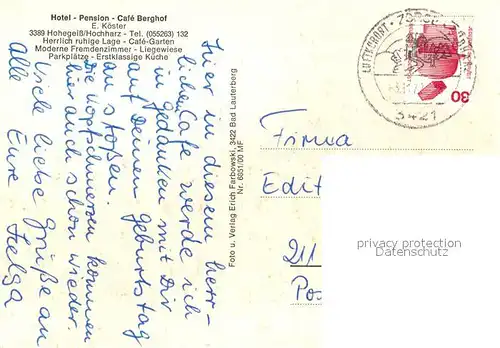 Hotel - Pension - Café Berghof
E. Köster
3389 Hohegeiß/Hochharz - Tel. (055263) 132
Herrlich ruhige Lage - Café-Garten
Moderne Fremdenzimmer - Liegewiese
Parkplätze - Erstklassige Küche
Hier in diesem herr-
lichen Cafe werde ich
in Gedanken mit Dir
auf Deinen Geburtstag
an stoßen.
Die Kopfschmerzen kommen
hier auch schon wieder.
Viele liebe Grüße an
Alle Eure Helga
Foto u. Verlag Erich Farbowski, 3422 Bad Lauterberg
Nr. 6651/00 MF
LUFTKURORT · ZORGE
3421
30
Firma
Edit
211
Po
privacy protection
Datenschutz